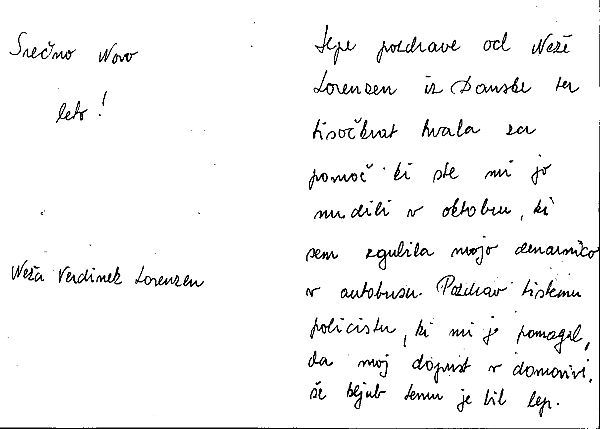 Srečno Novo
leto!
Neža Verdinek Lorenzen
Lepe pozdrave od Neže
Lorenzen iz Danske ter
tisočkrat hvala za
pomoč ki ste mi jo
nudili v oktobru, ki
sem zgubila mojo denarnico
v autobusu. Pozdrav tistemu
policistu, ki mi je pomagal,
da moj dopust v domovini,
še kljub temu je bil lep.